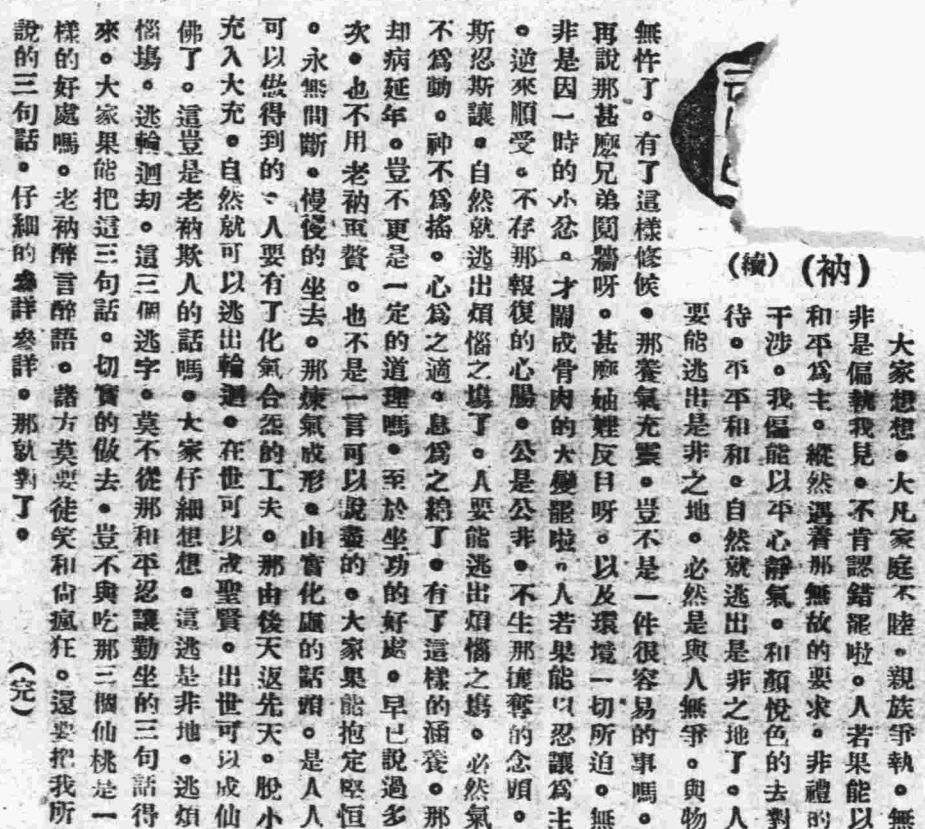 (衲)
(續)
大家想想。大凡家庭不睦。親族爭執。無
非是偏執我見。不肯認錯罷啦。人若果能以
和平爲主。縱然遇着那無故的要求。非禮的
干涉。我偏能以平心靜氣。和顏悅色的去對
待。平平和和。自然就逃出是非之地了。人
要能逃出是非之地。必然是與人無爭。與物
無忤了。有了這樣修候。那養氣充靈。豈不是一件很容易的事嗎。
再說那甚麼兄弟鬩牆呀。甚麼妯娌反目呀。以及環境一切所迫。無
非是因一時的小忿。才鬧成骨肉的大變罷啦。人若果能以忍讓爲主
。逆來順受。不存那報復的心腸。公是公非。不生那攘奪的念頭。
斯忍斯讓。自然就逃出煩惱之塲了。人要能逃出煩惱之塲。必然氣
不爲動。神不爲搖。心爲之適。息爲之綿了。有了這樣的涵養。那
却病延年。豈不更是一定的道理嗎。至於坐功的好處。早已說過多
次。也不用老衲再贅。也不是一言可以說盡的。大家果能抱定堅恒
。永無間斷。慢慢的坐去。那煉氣成形。由實化虛的話頭。是人人
可以做得到的。人要有了化氣合炁的工夫。那由後天返先天。脫小
充入大充。自然就可以逃出輪迴。在世可以成聖賢。出世可以成仙
佛了。這豈是老衲欺人的話嗎。大家仔細想想。這逃是非地。逃煩
惱塲。逃輪迴刧。這三個逃字。莫不從那和平忍讓勤坐的三句話得
來。大家果能把這三句話。切實的做去。豈不與吃那三個仙桃是一
樣的好處嗎。老衲醉言醉語。諸方莫要徒笑和尙瘋狂。還要把我所
說的三句話。仔細的參詳參詳。那就對了。
(完)